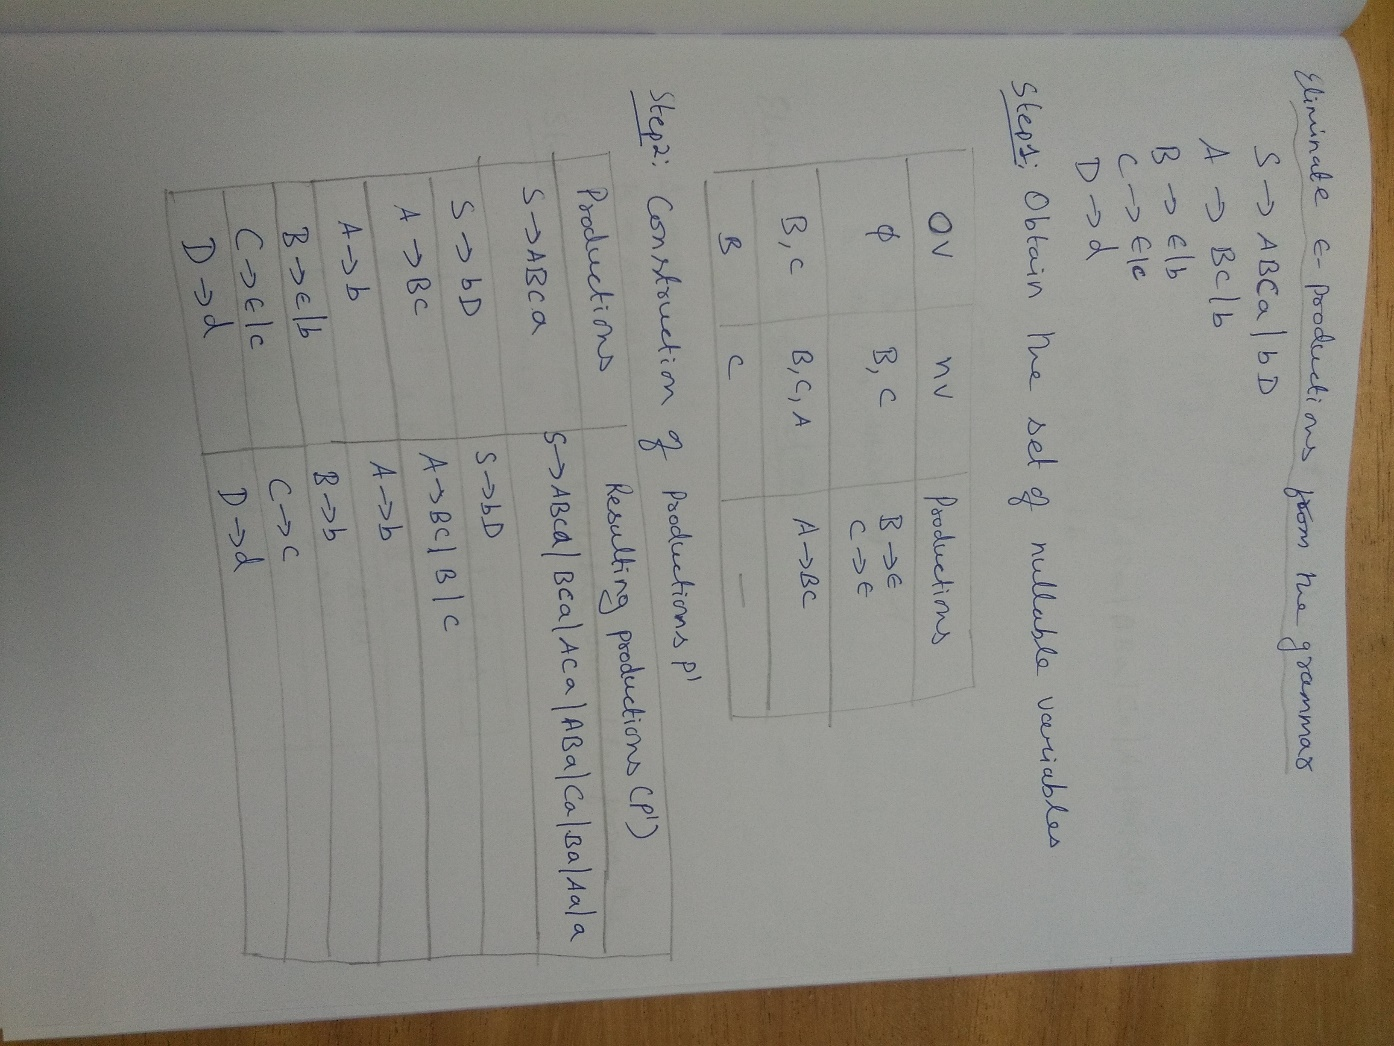 Eliminate ϵ-productions from the grammar
S → ABCa | bD
A → BC | b
B → ϵ | b
C → ϵ | c
D → d
Step1: Obtain the set of nullable variables
OV nv Productions
ϕ B, C B → ϵ
C → ϵ
B, C B, C, A A → BC
B C —
Step2: Construction of Productions P'
Productions Resulting productions (P')
S → ABCa S → ABCa | BCa | ACa | ABa | Ca | Ba | Aa | a
S → bD S → bD
A → BC A → BC | B | C
A → b A → b
B → ϵ | b B → b
C → ϵ | c C → c
D → d D → d